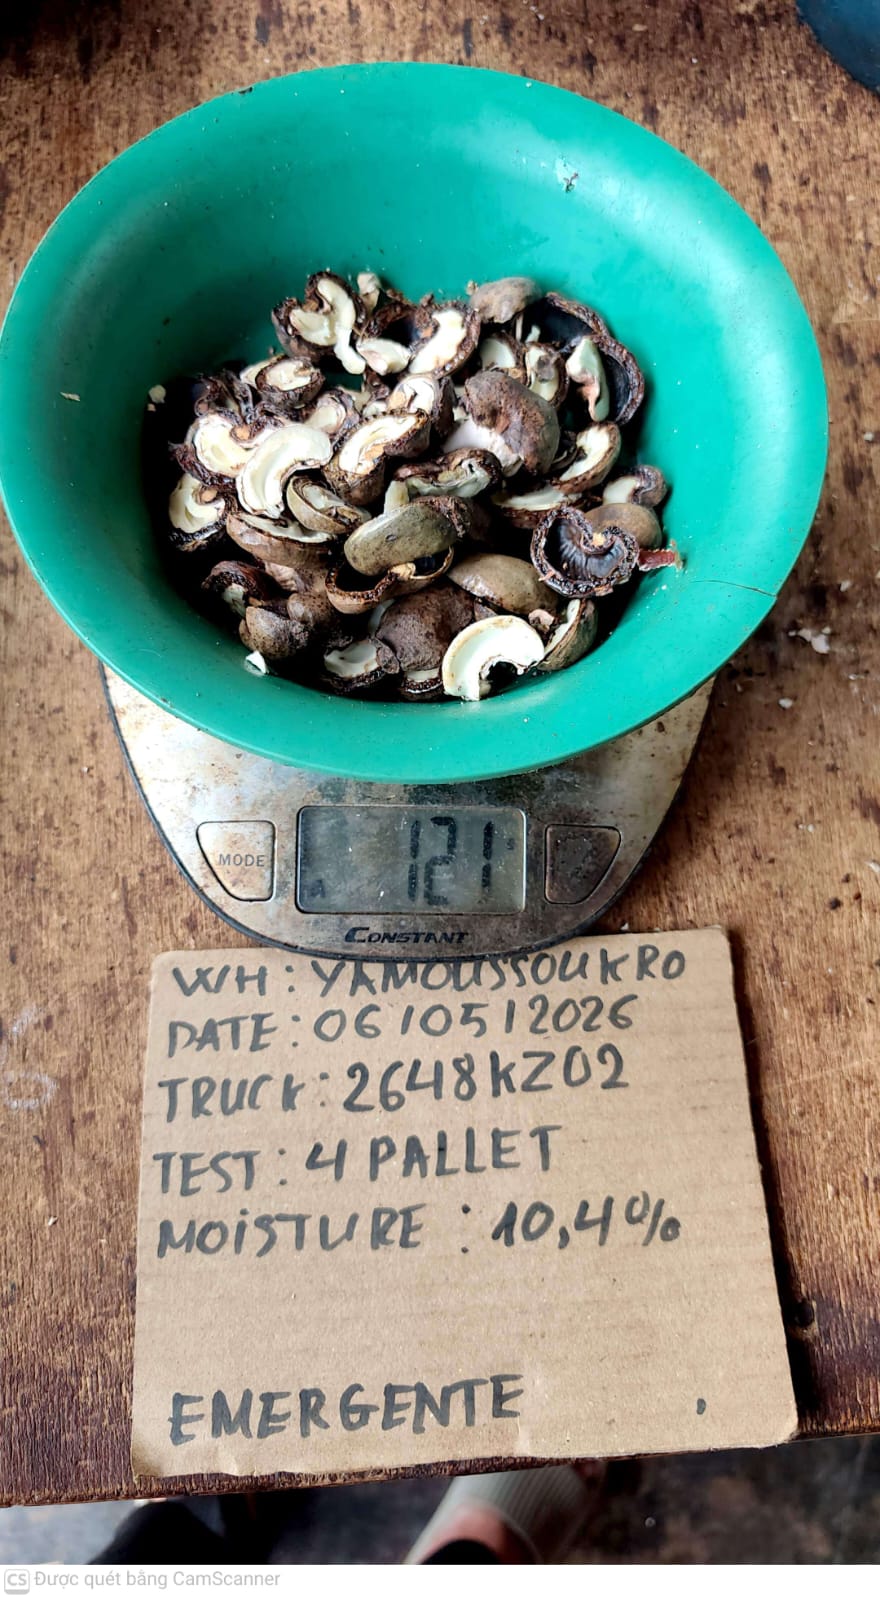 MODE
121
CONSTANT
WH : YAMOUSSOUKRO
DATE : 06/05/2026
TRUCK : 2648KZ02
TEST : 4 PALLET
MOISTURE : 10,4%
EMERGENTE
CS Được quét bằng CamScanner